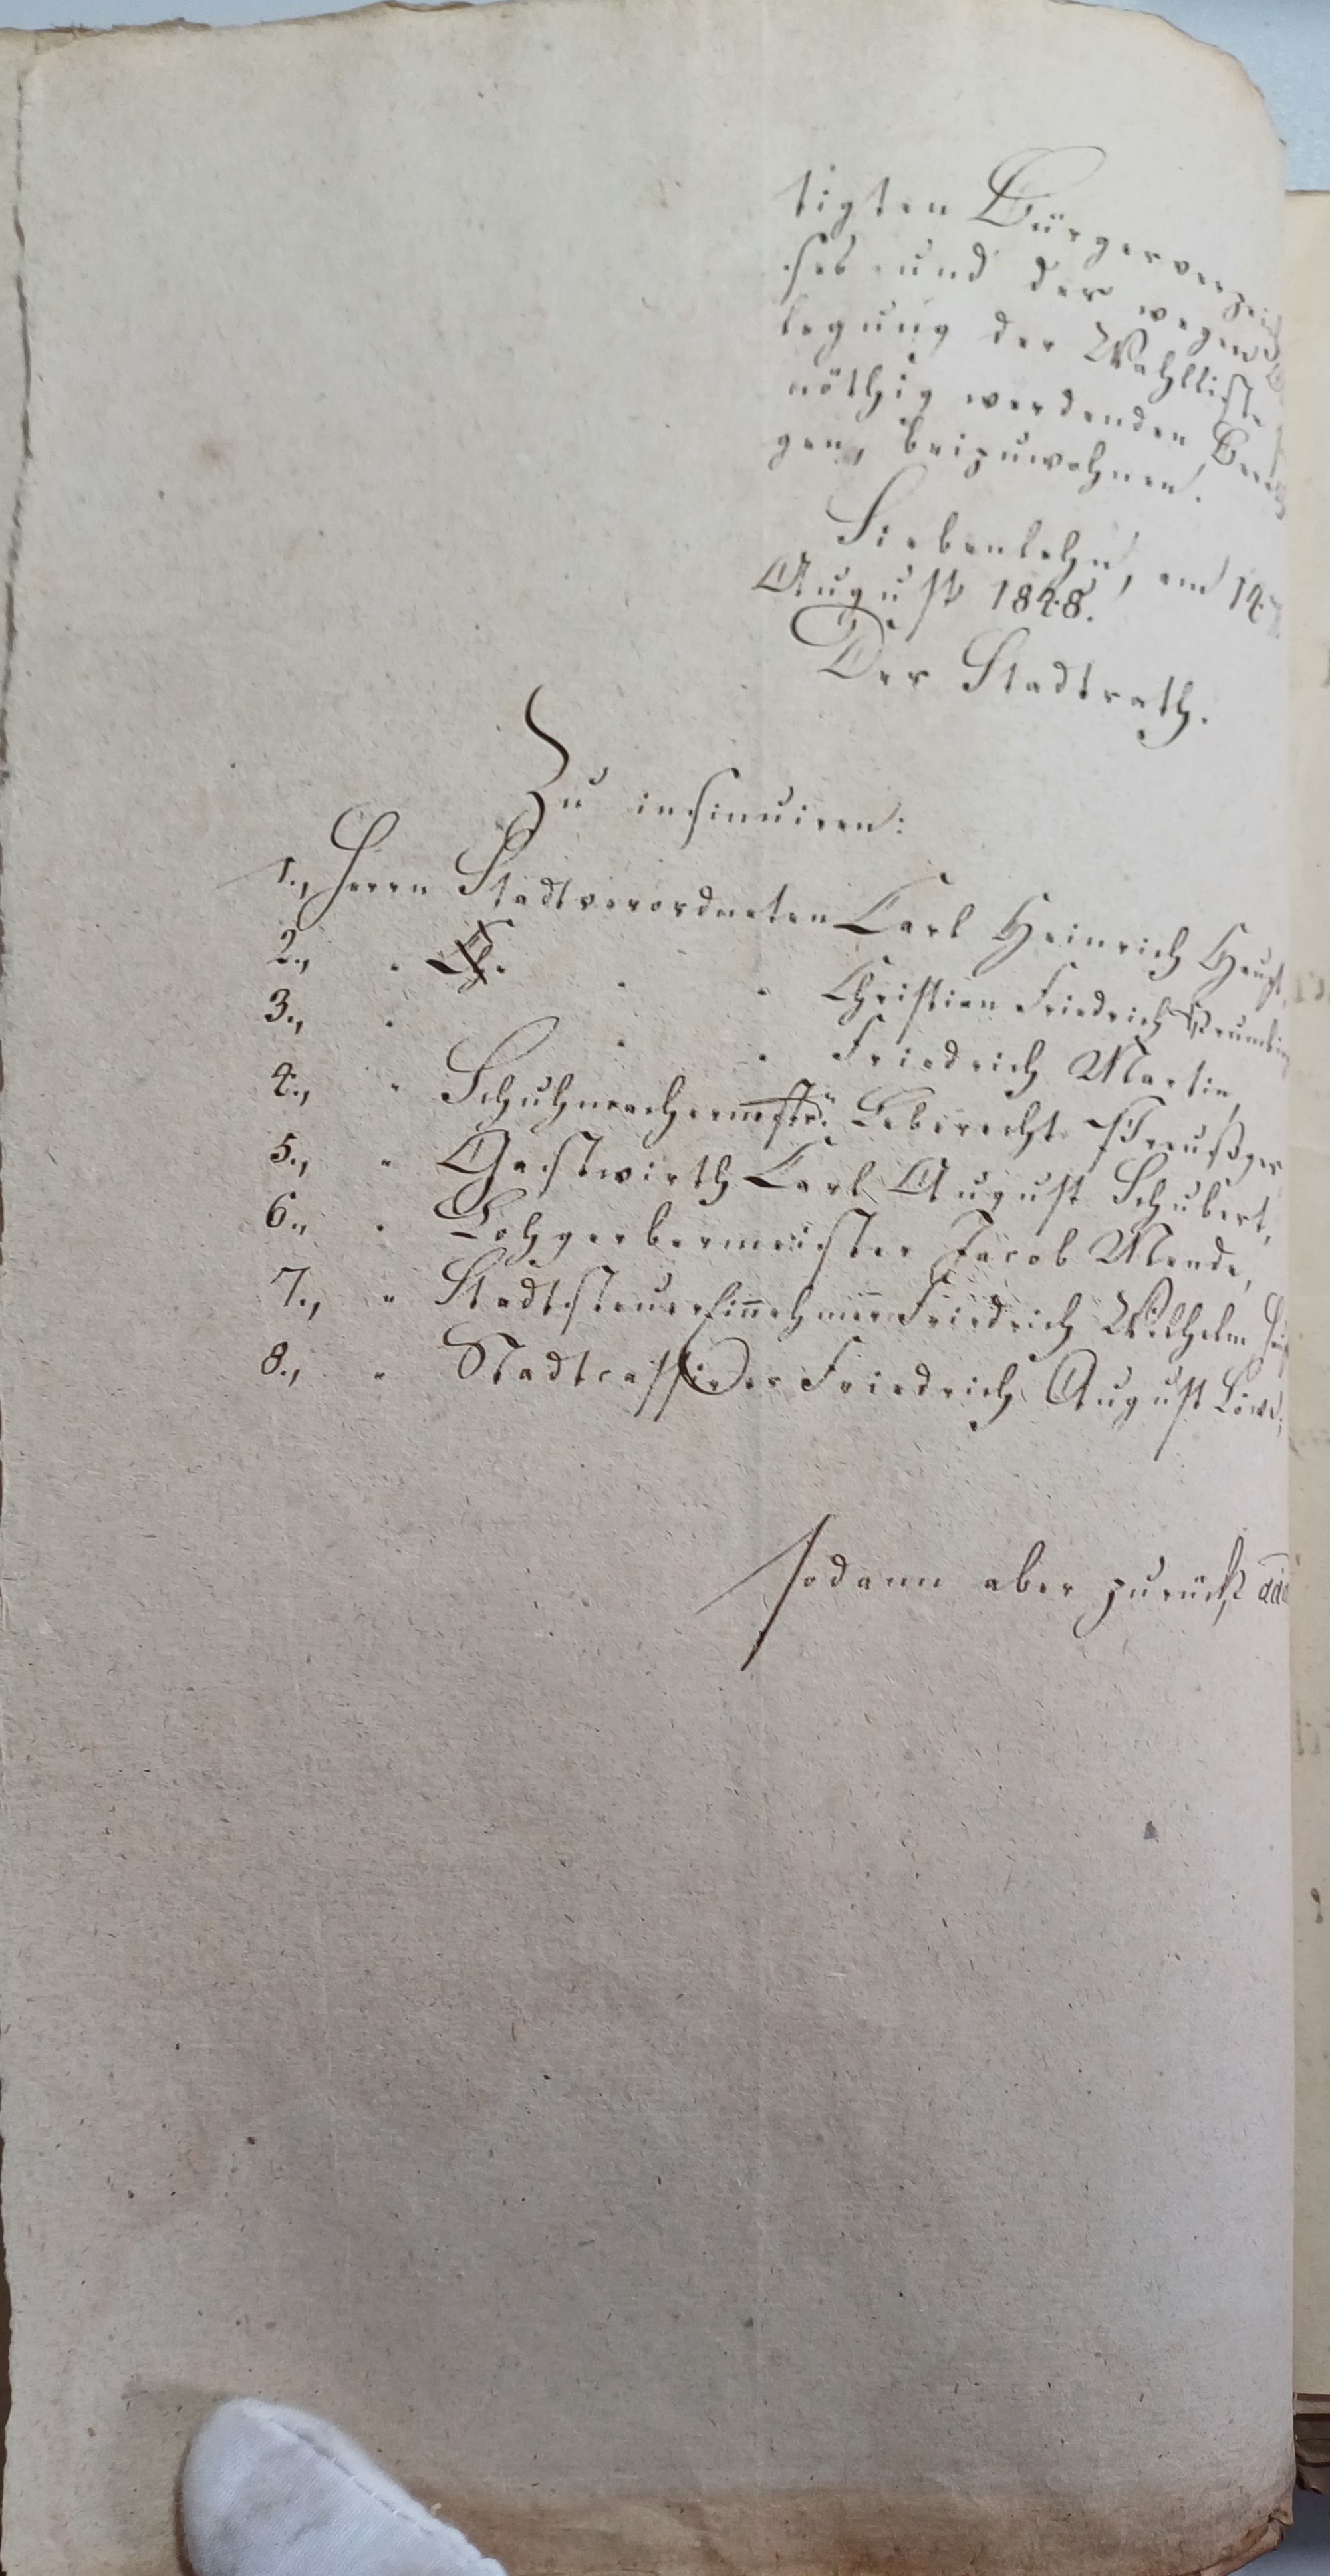 tigten Bürgerverzeich
ses und der wegen
legung der Wahlliste
nöthig werdenden
gen, beizuwohnen.
Siebenlehn, am 14.
August 1848.
Der Stadtrath.
Zu insinuiren:
1., Herrn Stadtverordneten Carl Heinrich Haupt,
2., " " " Christian Friedrich
3., " " " Friedrich Martin,
4., " Schuhmachermstr. Leberecht
5., " Gastwirth Carl August Schubert,
6., " Lohgerbermeister Jacob Mende,
7., " Stadtsteuereinnehmer Friedrich Wilhelm
8., " Stadtcassirer Friedrich August Löwe,
sodann aber zurück